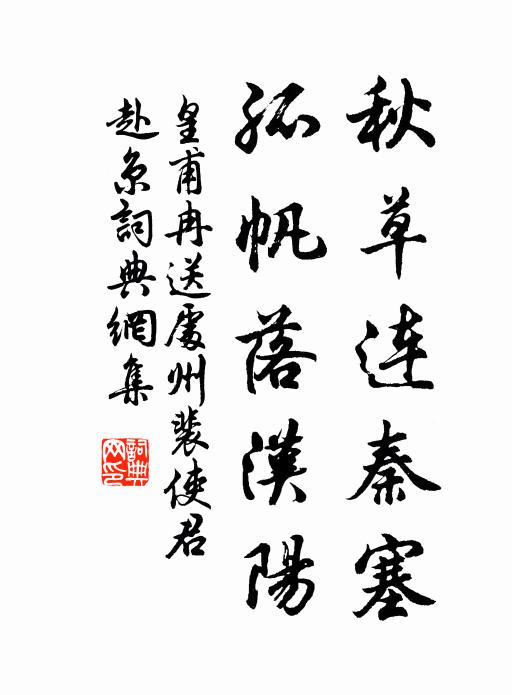 秋草連秦塞
孤帆落漢陽
皇甫冉送處州裴使君
赴京詞典網集
詞典
网印